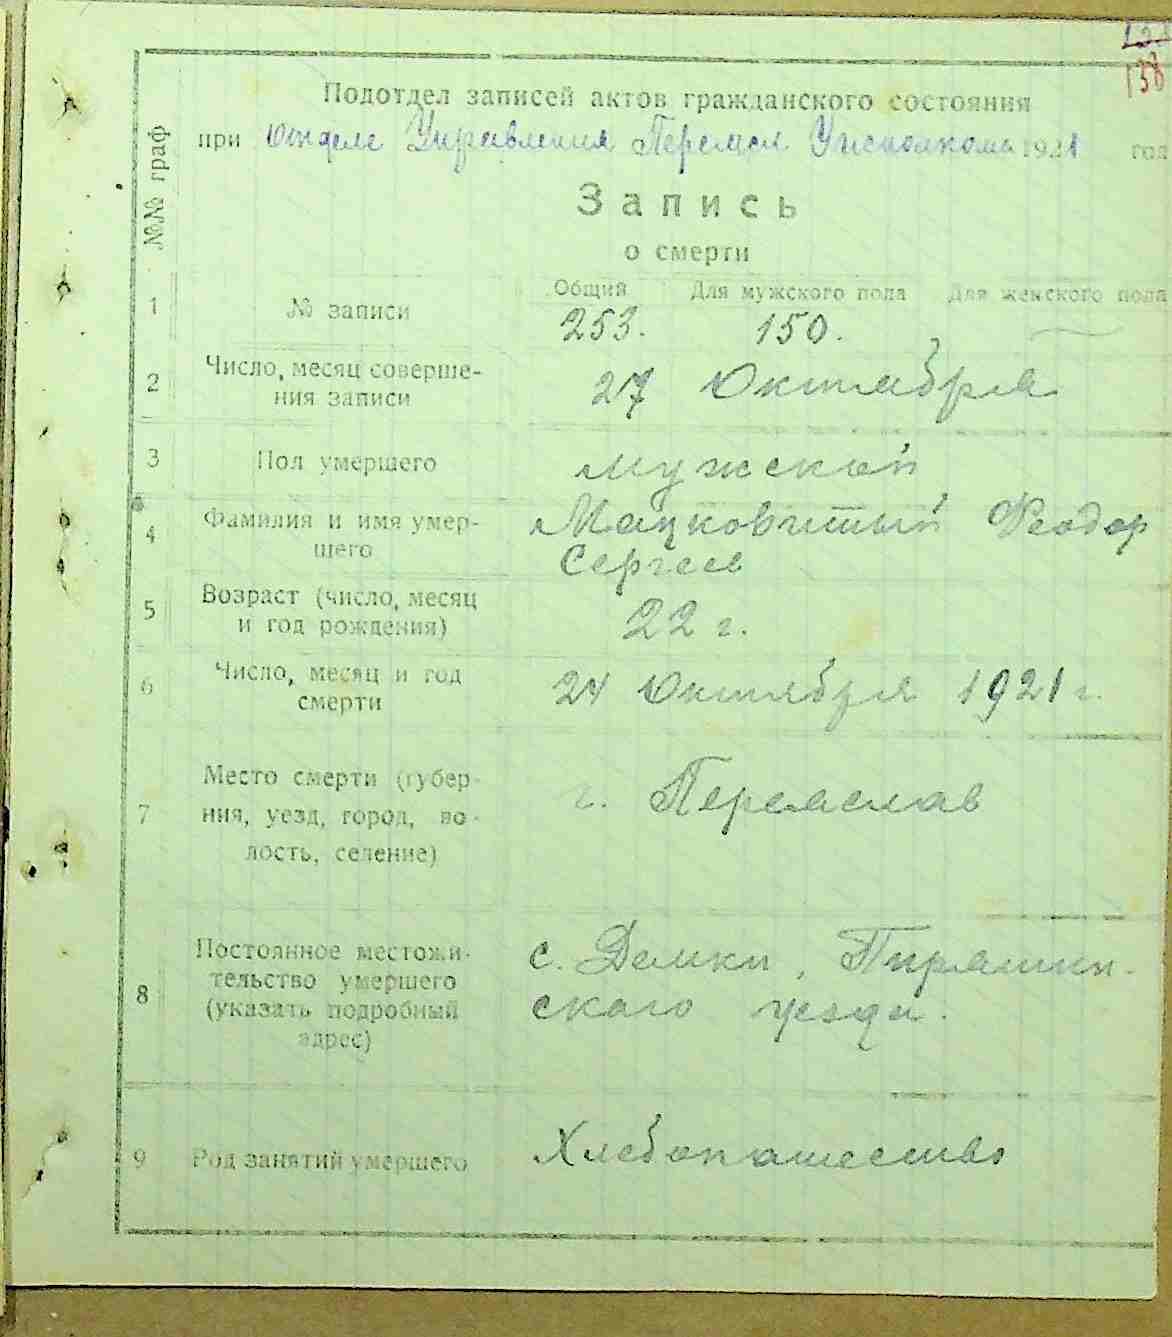 138
Подотдел записей актов гражданского состояния
при Отделе Управления Переясл. Уисполкома 1921 год
№№ граф
Запись
о смерти
Общий Для мужского пола Для женского пола
1 № записи 253. 150.
2 Число, месяц соверше-
ния записи 27 Октября
3 Пол умершего мужской
4 Фамилия и имя умер-
шего Феодор
Сергеев
5 Возраст (число, месяц
и год рождения) 22 г.
6 Число, месяц и год
смерти 24 Октября 1921 г.
7 Место смерти (губер-
ния, уезд, город, во-
лость, селение) г. Переяслав
8 Постоянное местожи-
тельство умершего
(указать подробный
адрес) с. Демки, Пирятин-
ского уезда.
9 Род занятий умершего Хлебопашество